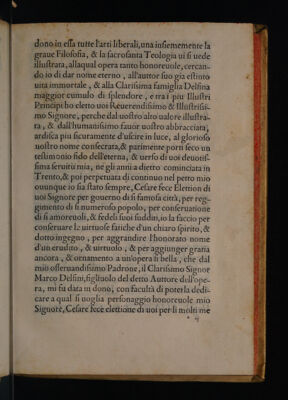 dono in essa tutte l'arti liberali, una insiememente la
graue Filosofia, & la sacrosanta Teologia ui si uede
illustrata, allaqual opera tanto honoreuole, cercan-
do io di dar nome eterno, all'autor suo gia estinto
uita immortale, & alla Clarissima famiglia Delfina
maggior cumulo di splendore, e tra i piu Illustri
Principi ho eletto uoi Reuerendissimo & Illustrissi-
mo Signore, perche dal uostro alto ualore illustra-
ta, & dall'humanissimo fauor uostro abbracciata,
ardisca piu sicuramente d'uscire in luce, al glorioso
uostro nome consecrata, & parimente porti seco un
testimonio fido dell'eterna, & uerso di uoi deuotis-
sima seruitù mia, ne gli anni a dietro cominciata in
Trento, & poi perpetuata di continuo nel petto mio
ouunque io sia stato sempre, Cesare fece Elettion di
uoi Signore per gouerno di si famosa città, per reg-
gimento di si numeroso popolo, per conseruatione
di si amoreuoli, & fedeli suoi sudditi, io la faccio per
conseruare le uirtuose fatiche d'un chiaro spirito, &
dotto ingegno, per aggrandire l'honorato nome
d'un erudito, & uirtuolo, & per aggiunger gratia
ancora, & ornamento a un'opera si bella, che dal
mio osseruandissimo Padrone, il Clarissimo Signor
Marco Delfini, figliuolo del detto Auttore dell'ope-
ra, mi fu data in dono, con facultà di poterla dedi-
care a qual si uoglia personaggio honoreuole mio
Signore, Cesare fece elettione di uoi per li molti me